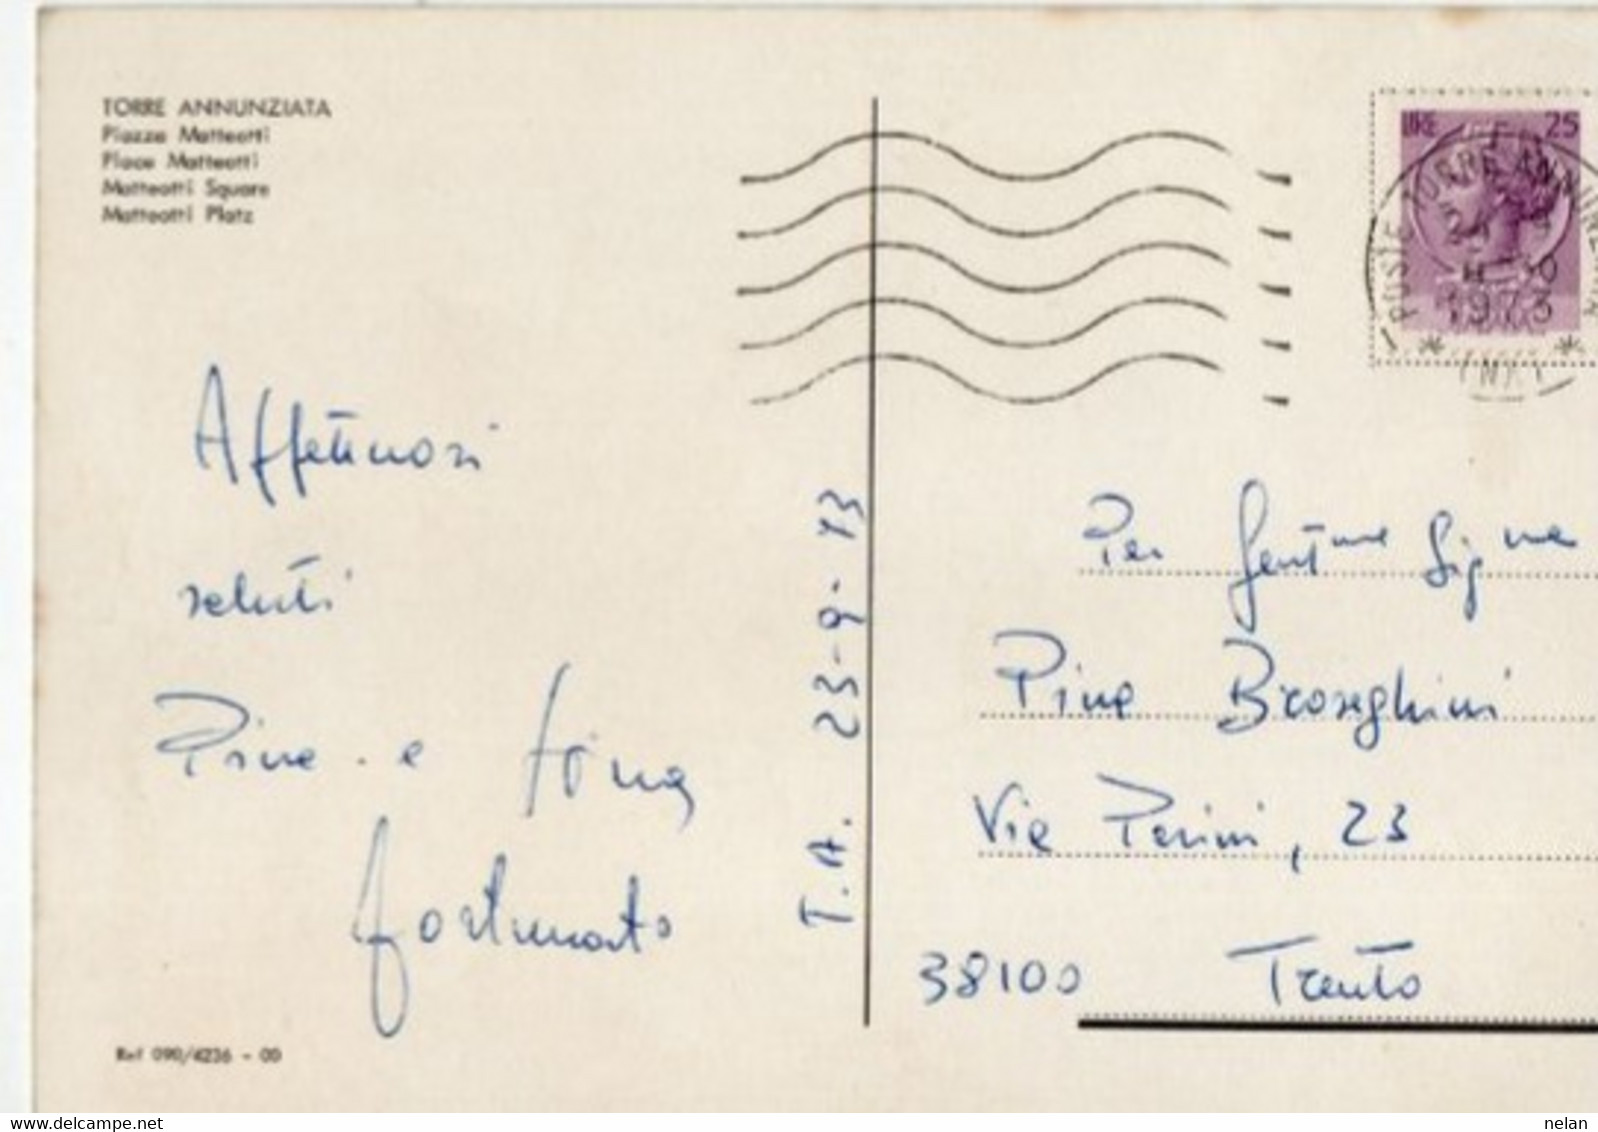 TORRE ANNUNZIATA
Piazza Matteotti
Place Matteotti
Matteotti Square
Matteotti Platz
Affettuosi
saluti
Pina e
Fortunato
Ref 090/4236 - 00
T.A. 23-9-73
LIRE 25
POSTE TORRE ANNUNZIATA
1973
Per Gent.ma Sig.na
Pina Broseghini
Via Perini, 23
38100 Trento
delcampe.net
nelan